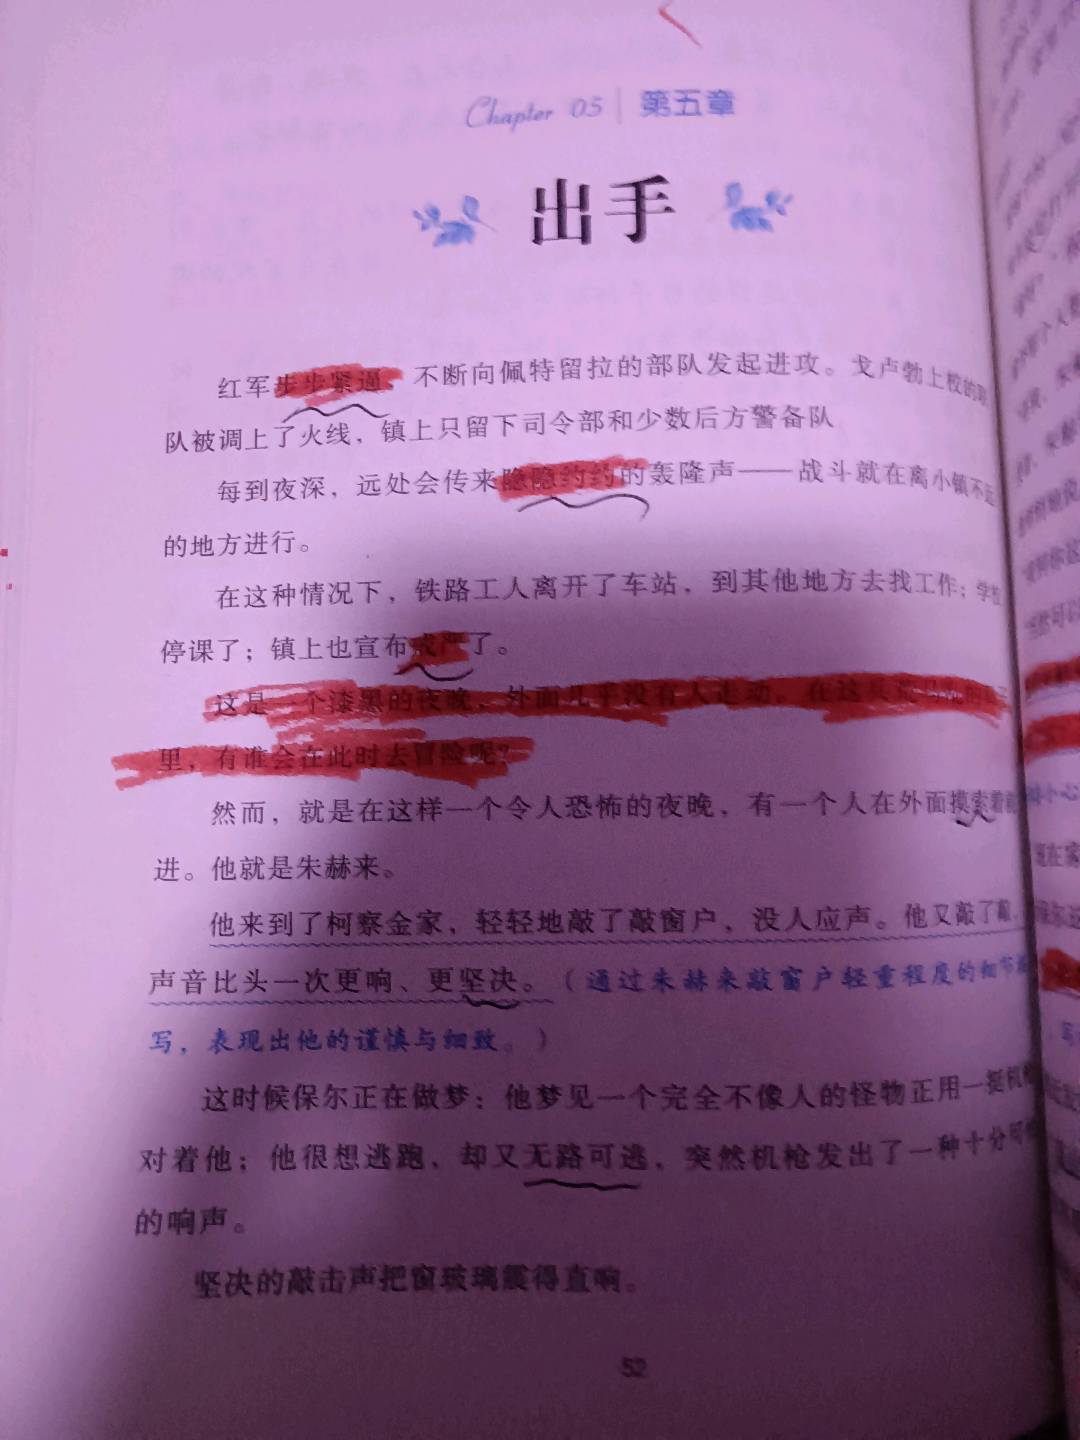 Chapter 05 | 第五章
出手
红军步步紧逼，不断向佩特留拉的部队发起进攻。戈卢勃上校的
队被调上了火线，镇上只留下司令部和少数后方警备队
每到夜深，远处会传来隐隐约约的轰隆声——战斗就在离小镇不远
的地方进行。
在这种情况下，铁路工人离开了车站，到其他地方去找工作；学校
停课了；镇上也宣布戒严了。
这是一个漆黑的夜晚，外面几乎没有人走动。在这兵荒马乱的
里，有谁会在此时去冒险呢？
然而，就是在这样一个令人恐怖的夜晚，有一个人在外面摸索着
进。他就是朱赫来。
他来到了柯察金家，轻轻地敲了敲窗户，没人应声。他又敲了敲，
声音比头一次更响、更坚决。（通过朱赫来敲窗户轻重程度的细节
写，表现出他的谨慎与细致。）
这时候保尔正在做梦：他梦见一个完全不像人的怪物正用一挺机
对着他；他很想逃跑，却又无路可逃，突然机枪发出了一种十分可
的响声。
坚决的敲击声把窗玻璃震得直响。
52